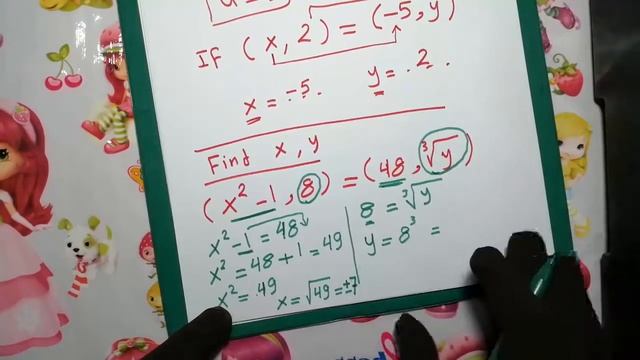 If (x, 2) = (-5, y)
x = -5. y = 2.
Find x, y
(x² - 1, 8) = (48, ∛y)
x² - 1 = 48
x² = 48 + 1 = 49
x² = 49 x = √49 = ±7
8 = ∛y
y = 8³ =